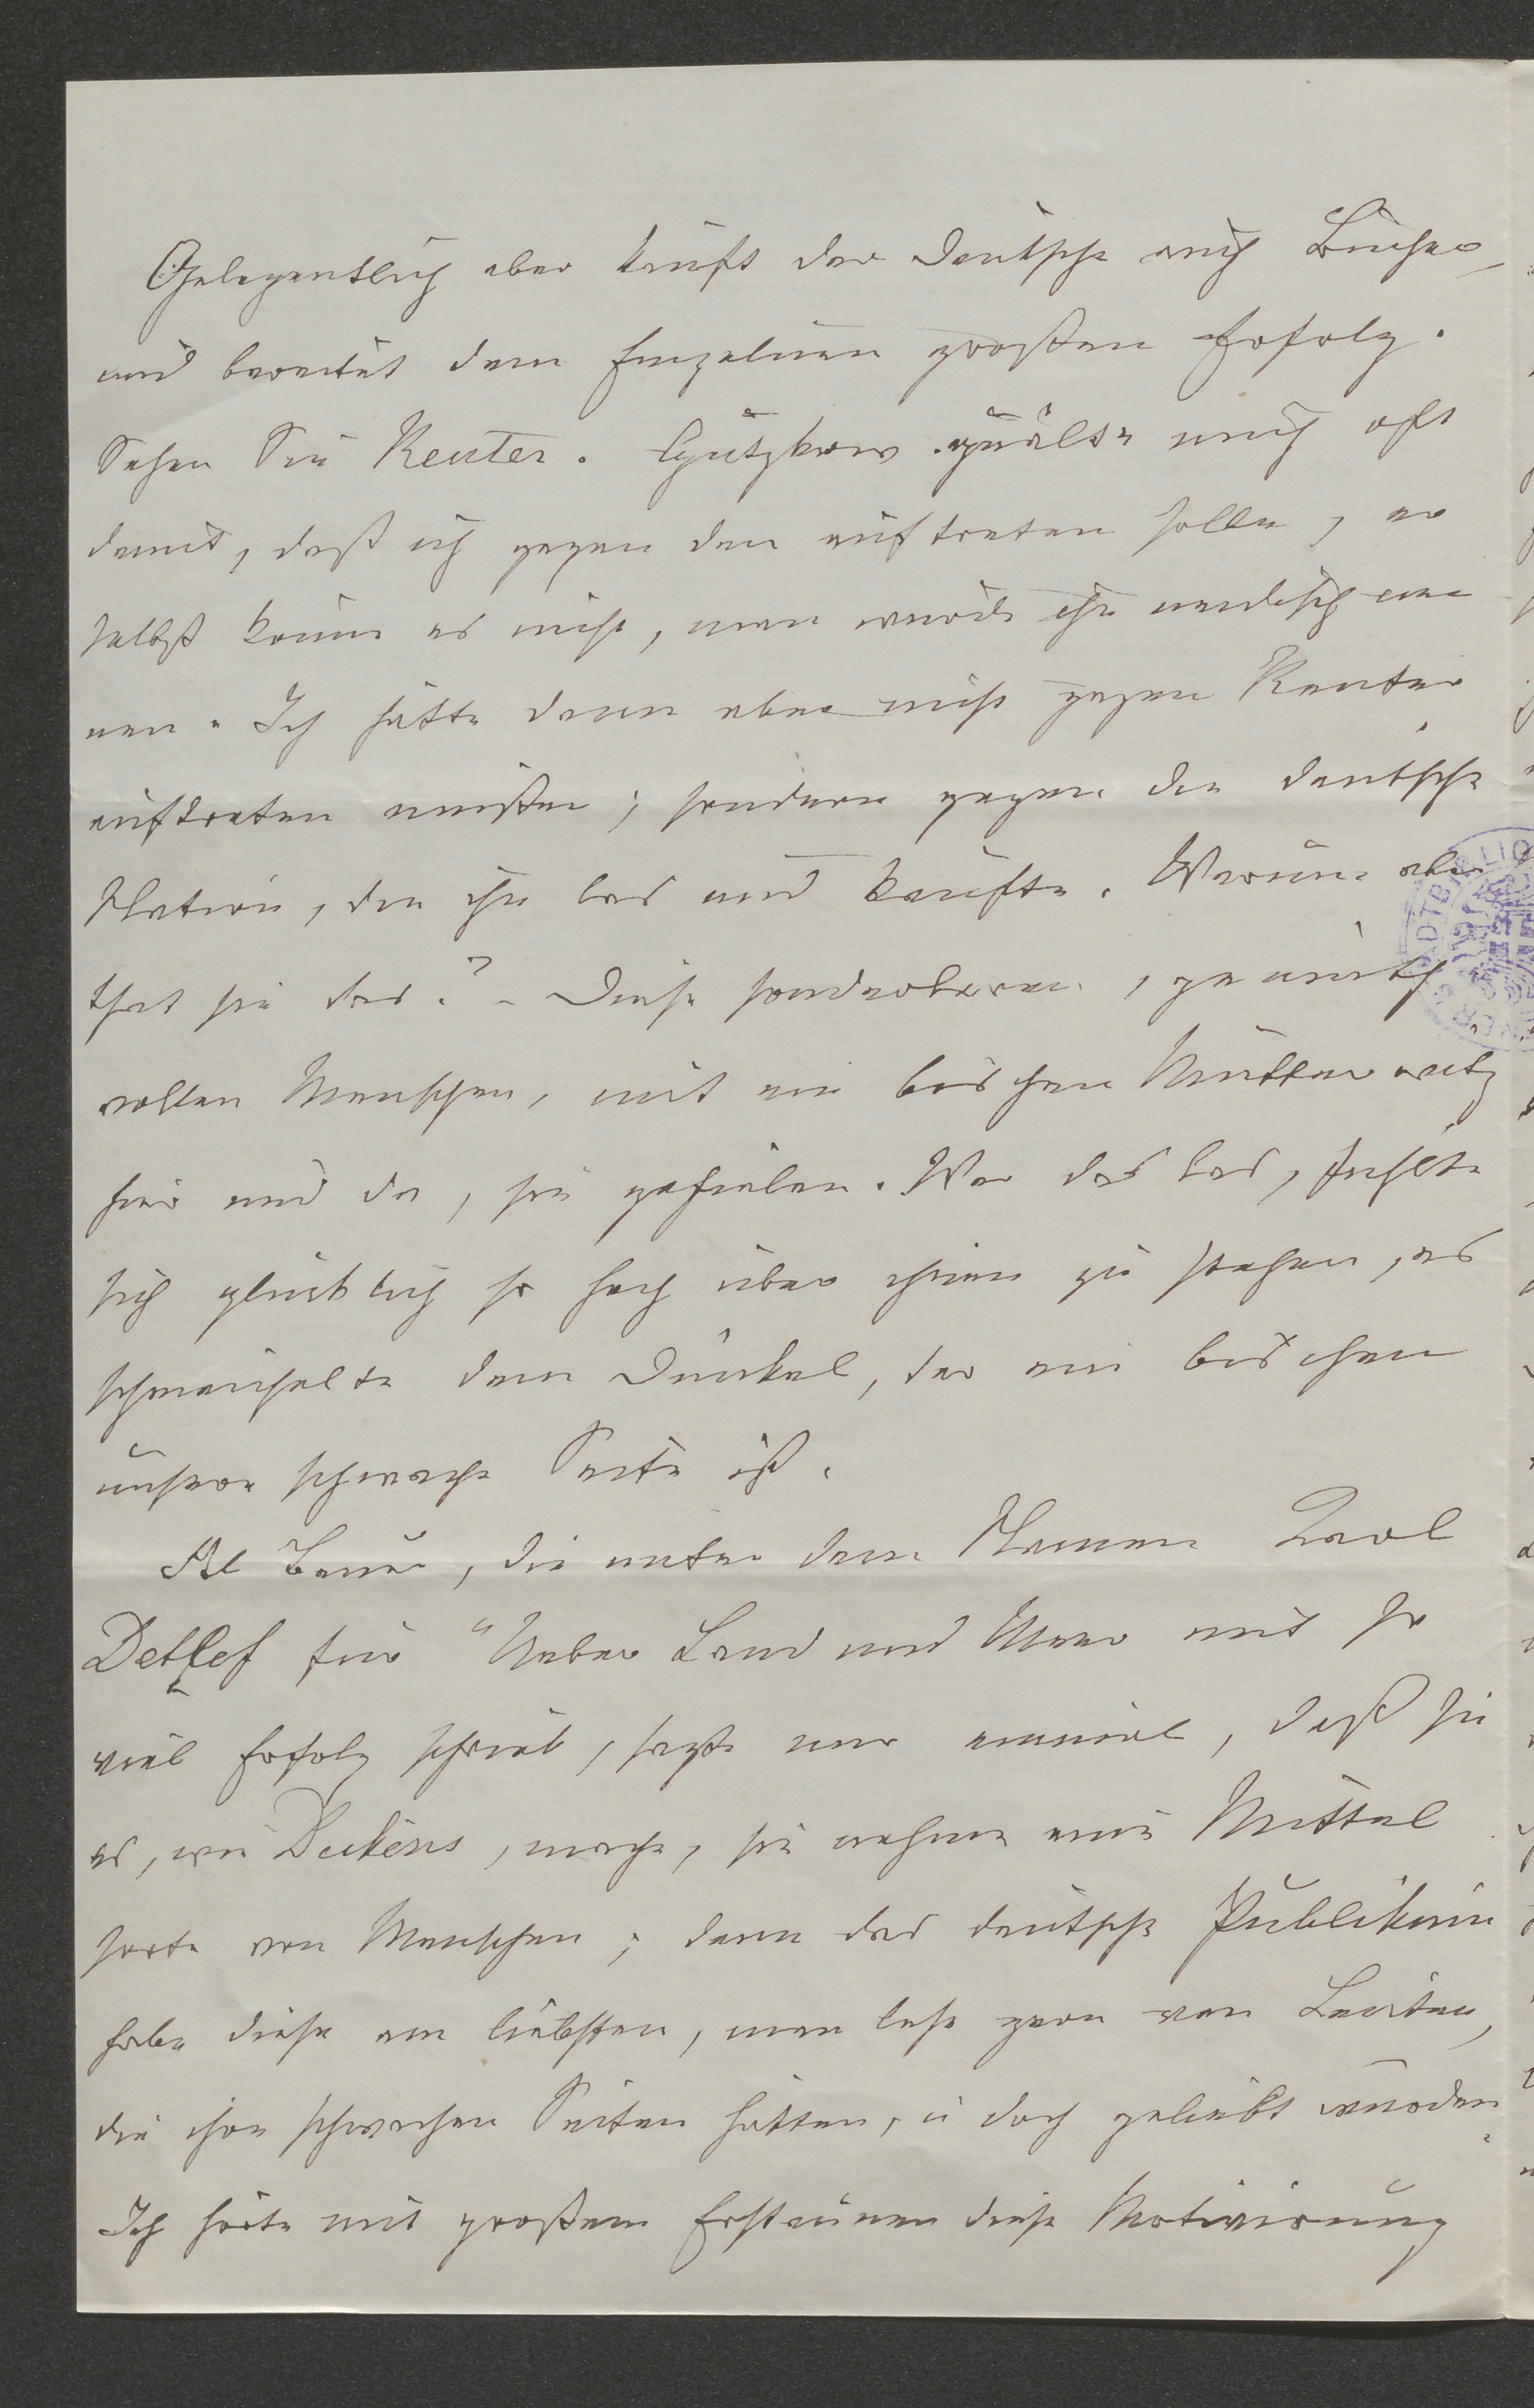 Gelegentlich aber kauft der Deutsche auch Bücher,
und bereitet dem Einzelnen großen Erfolg.
Sehen Sie Reuter. Gutzkow quälte mich oft
damit, daß ich gegen den auftreten solle, er
selbst könne es nicht, man würde ihn neidisch nen
nen. Ich hätte dann aber nicht gegen Reuter
auftreten müßen, sondern gegen die deutsche
Nation, die ihn las und kaufte. Warum aber
that sie das? – Diese sonderbaren, gemüth
vollen Menschen, mit ein bischen Mutterwitz
hier und da, sie gefielen. Wer das las, fühlte
sich glücklich so hoch über ihnen zu stehen, es
schmeichelte dem Dünkel, der ein bischen
unsere schwache Seite ist.
Kl Bauer, die unter dem Namen Karl
Detlef für "Ueber Land und Meer mit so
viel Erfolg schrieb, sagte mir einmal, daß sie
es, wie Dickens, mache, sie nehme eine Mittel
sorte von Menschen; denn das deutsche Publikum
habe diese am liebsten, man lese gern von Leuten,
die ihre schwachen Seiten hätten, u doch geliebt würden.
Ich hörte mit großem Erstaunen diese Motivirung